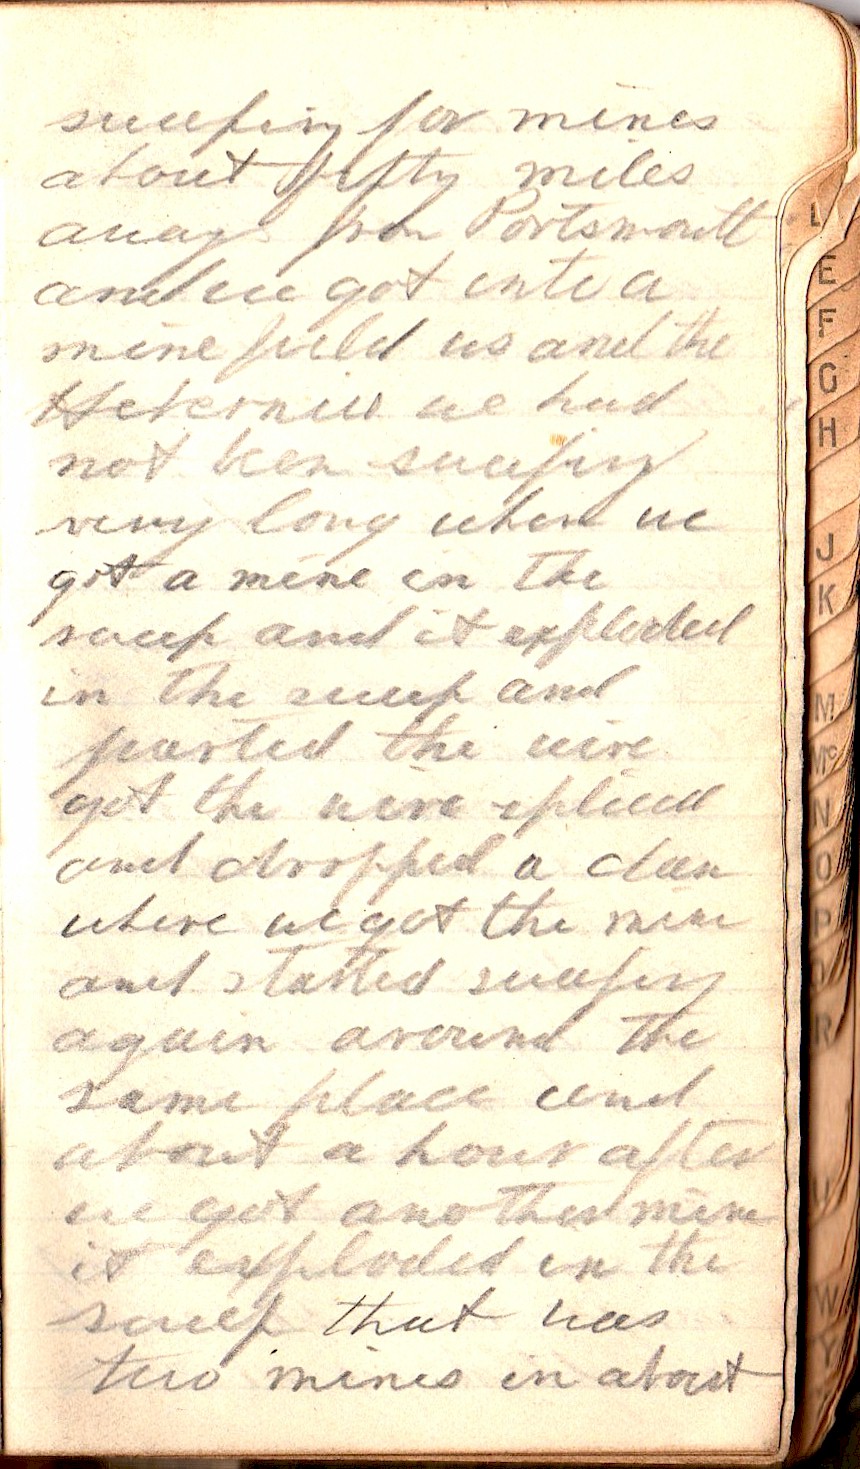 sweeping for mines
about fifty miles
away from Portsmouth
and we got into a
mine field us and the
we had
not been sweeping
very long when we
got a mine in the
sweep and it exploded
in the sweep and
parted the wire
got the wire spliced
and dropped a dan
where we got the mine
and started sweeping
again around the
same place and
about a hour after
we got another mine
it exploded in the
sweep that was
two mines in about
L
E
F
G
H
J
K
M
Mc
N
O
P
Q
R
U
W
Y